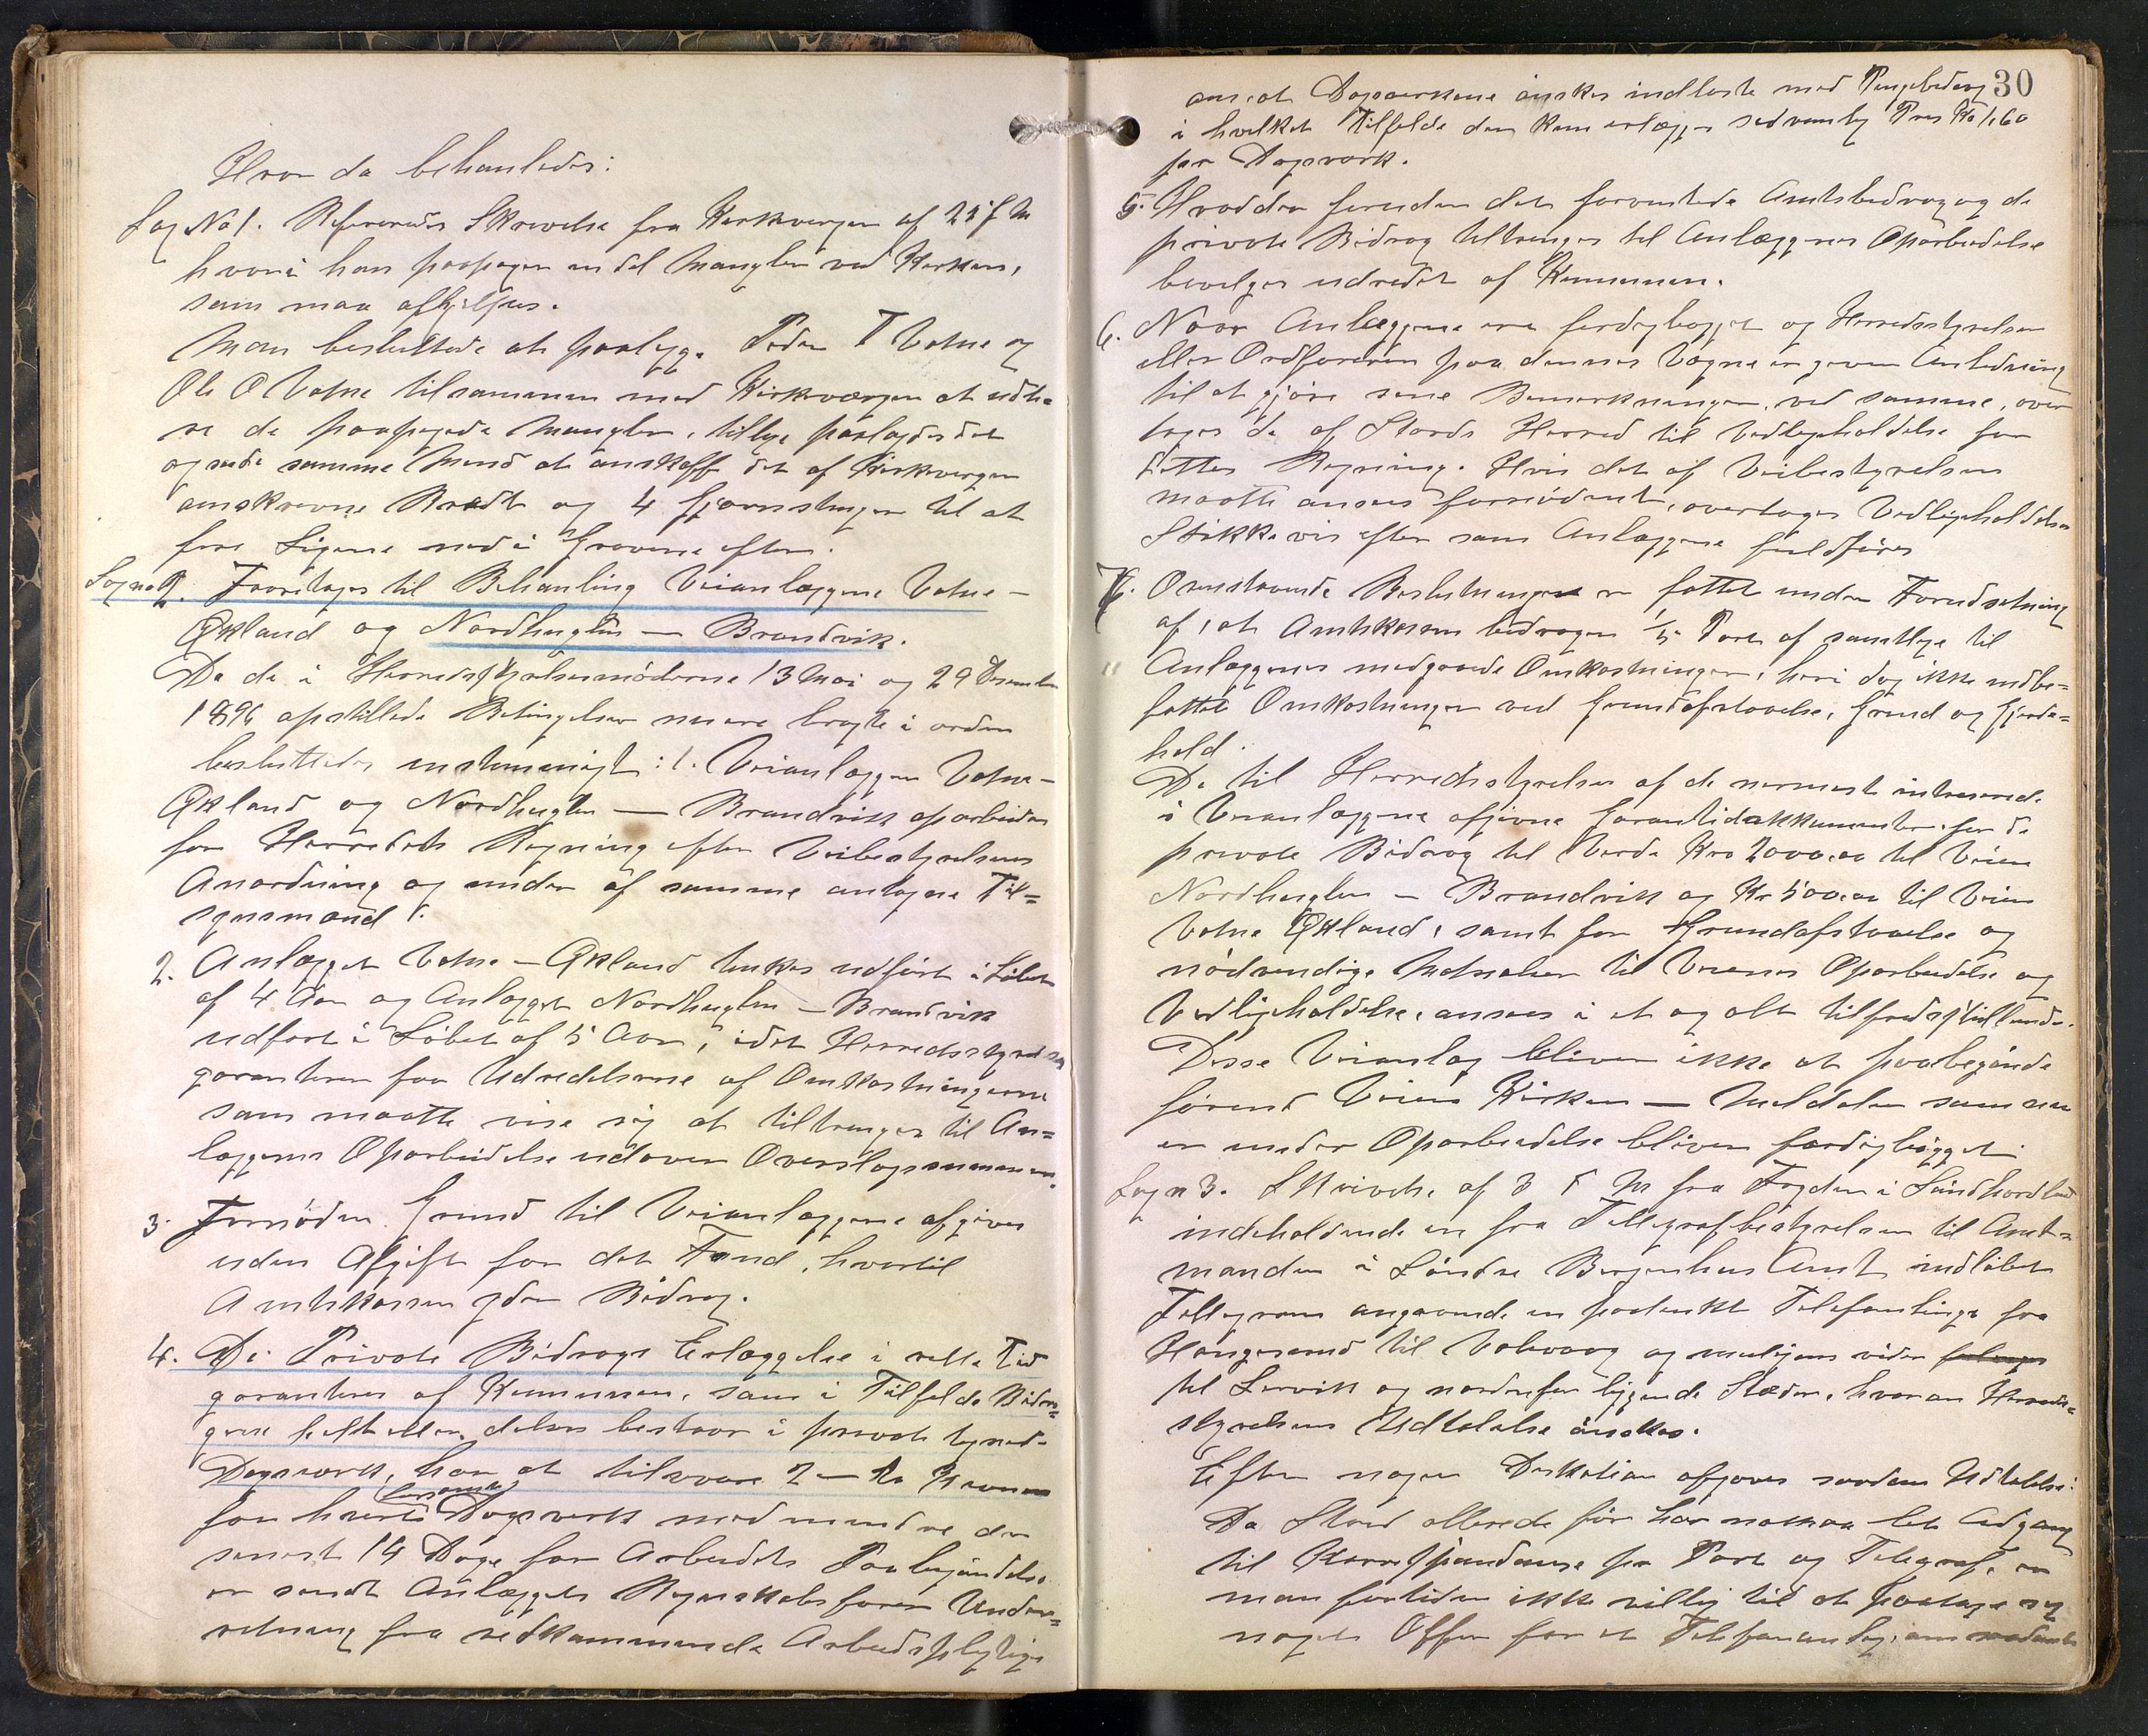 Hvor da behanledes:
Sag No 1. Refereredes Skrivelse fra Kirkvergen af 22 f M
hvori han paapeger en del Mangler ved Kirken,
som maa afhjelpes.
Man besluttede at paalegge Peder T Vatne og
Ole O Vatne tilsammen med Kirkværgen at udbe
re de paapegede Mangler, tillige paalagdes det
ogsaa de samme Mend at anskaffe det af Kirkvergen
omskrevne Brædt og 4 Hjørnstenger til at
fire Ligene ned i Gravene efter.
Sag no 2. Foretages til Behanling Veianlæggene Vatne —
Økland og Nordhuglen — Brandvik.
Da de i Herredsstyrelsesmøderne 13 Mai og 29 Desember
1896 opstillede Betingelser nu ere bragte i orden
besluttedes enstemmigt: 1. Veianlæggene Vatne —
Økland og Nordhuglen — Brandvik oparbeides
for Herredets Regning efter Veibestyrelsens
Anordning og under af samme antagne Til=
synsmænd.
2. Anlægget Vatne — Økland tenkes udført i Løbet
af 4 Aar og Anlægget Nordhuglen — Brandvik
udført i Løbet af 5 Aar, idet Herredsstyrelsen
garanterer for Udredelserne af Omkostningerne
som maatte vise sig at tiltrenges til An=
læggenes Oparbeidelse udover Overslagssummen.
3. Fornøden Grund til Veianlæggene afgives
uden Afgift for det Fond, hvortil
Amtskassen yder Bidrag.
4. De Private Bidrags Erlæggelse i rette Tid
garanteres af Kommunen, som i Tilfelde Bidra=
gene helt eller delvis bestaar i private lignede
Dagsverk, har at tilsvare 2 — to Kroner
forsømte
for hvert Dagsverk med mindre der
senest 14 Dage før Arbeidets Paabegyndelse
er sendt Anlæggets Regnskabsfører Under=
retning fra vedkommende Arbeidspligtige
30
om, at Dagsverkene ønskes indløste med Pengebidrag
i hvilket Tilfelde der kun erlægges sedvanlig Pris Kr 1,60
per Dagsverk.
5. Hvad der foruden det forventede Amtsbidrag og de
private Bidrag tiltrenges til Anlæggenes Oparbeidelse
bevilges udredet af Kommunen.
6. Naar Anlæggene ere ferdigbygget og Herredsstyrelsen
eller Ordføreren paa dennes Vegne er given Anledning
til at gjøre sine Bemerkninger ved samme, over
tages de af Stords Herred til Vedligeholdelse for
dettes Regning. Hvis det af Veibestyrelsen
maatte ansees fornødent, overtages Vedligeholdelsen
Stykkevis efter som Anlæggene fuldføres
7. Ovenstaaende Beslutninger er fattet under Forudsetning
af, at Amtskassen bidrager 1/5 Part af samtlige til
Anlæggenes medgaaede Omkostninger, heri dog ikke indbe=
fattet Omkostninger ved Grundafstaaelse, Grind og Gjerde=
hold.
De til Herredsstyrelsen af de nermest interesserede
i Veianlæggene afgivne Garantidokkumenter for de
private Bidrag til Verdi Kro 2000,00 til Veien
Nordhuglen — Brandvik og Kr 500,00 til Veien
Vatne Økland, samt for Grundafstaaelse og
nødvendige Materialier til Veienes Oparbeidelse og
Vedligeholdelse, ansees i et og alt tilfredsstillende.
Disse Veianlæg bliver ikke at paabegynde
førend Veien Kirken — Meldalen som nu
er under Oparbeidelse bliver færdigbygget.
Sag n 3. Skrivelse af 3 d M fra Fogden i Søndhordland
indeholdende en fra Tellegrafbestyrelsen til Amt=
manden i Søndre Bergenhus Amt indløbet
Tellegram angaaende en paatenkt Telefonlinge fra
Haugesund til Valevaag og muligens vider
til Lervik og nordenfor liggende Stæder, hvorom Herreds=
styrelsens Udtalelse ønskes.
Efter nogen Deskution afgaves saadan Udtalelse:
Da Stord allerede før har noksaa let Adgang
til Korrespondanse per Post og Telegraf, er
man fortiden ikke villig til at paatage sig
noget Offer for et Telefonanleg, om saadant